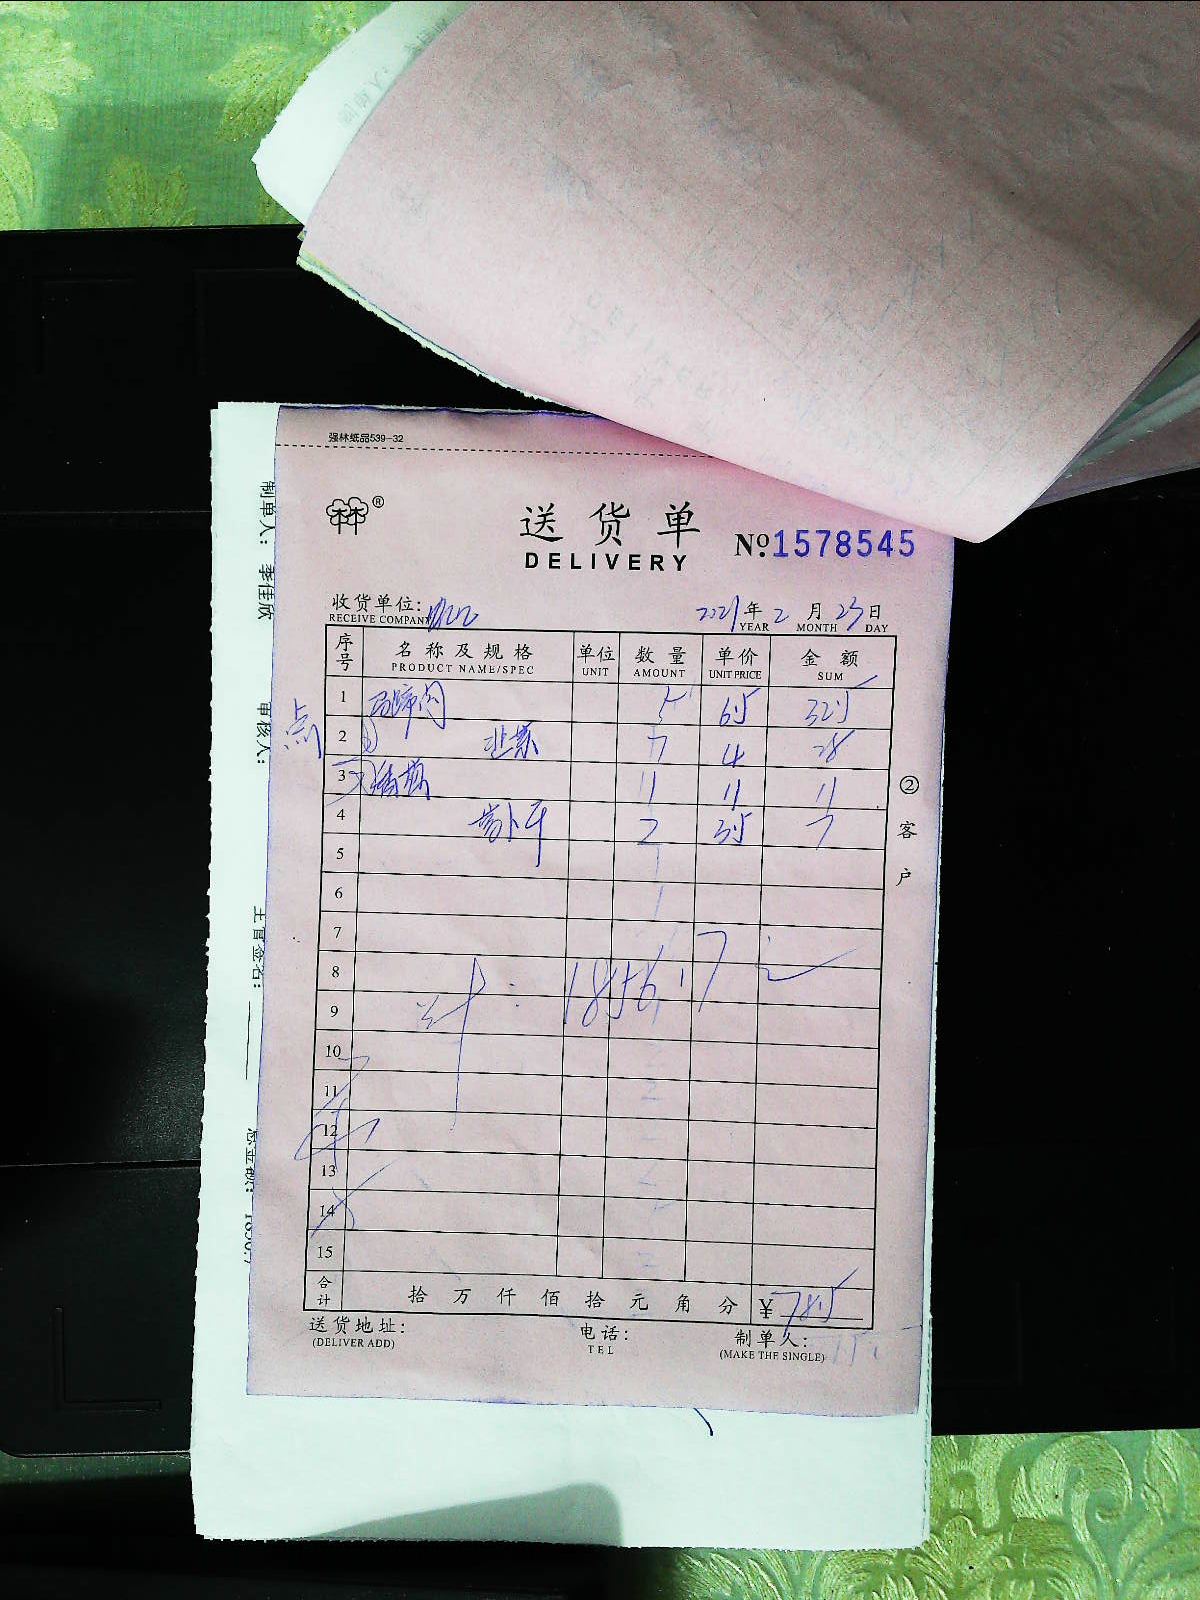 强林纸品539-32
林林®
送货单
DELIVERY
Nº1578545
收货单位:
RECEIVE COMPANY
2021年2月23日
YEAR MONTH DAY
序号 名称及规格 单位 数量 单价 金额
PRODUCT NAME/SPEC UNIT AMOUNT UNIT PRICE SUM
1 马蹄肉 5 65 325
2 韭菜 7 4 28
3 11 11 11
4 2 35 7
5
6
7
8
9
计: 1856.17元
10
11
12
13
14
15
合计 拾万仟佰拾元角分 ¥785
送货地址:
(DELIVER ADD)
电话:
TEL
制单人:
(MAKE THE SINGLE)
②客户
制单人: 李佳欣
审核人:
主管签名:
总金额: